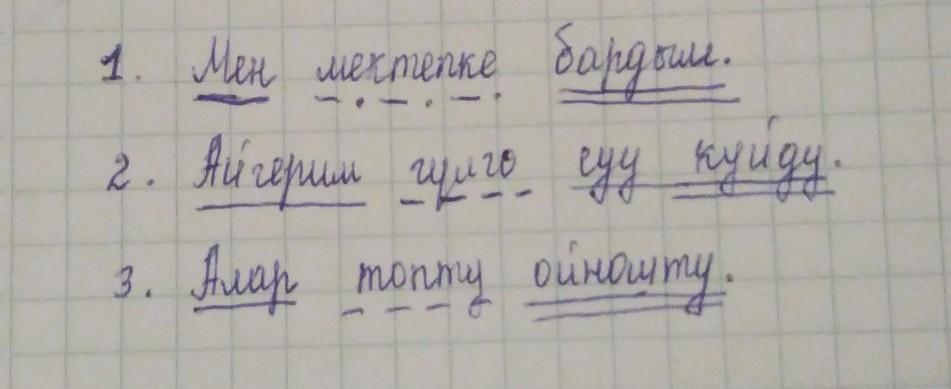 1. Мен мектепке бардым.
2. Айгерим гулго суу куйду.
3. Алар топту ойношту.